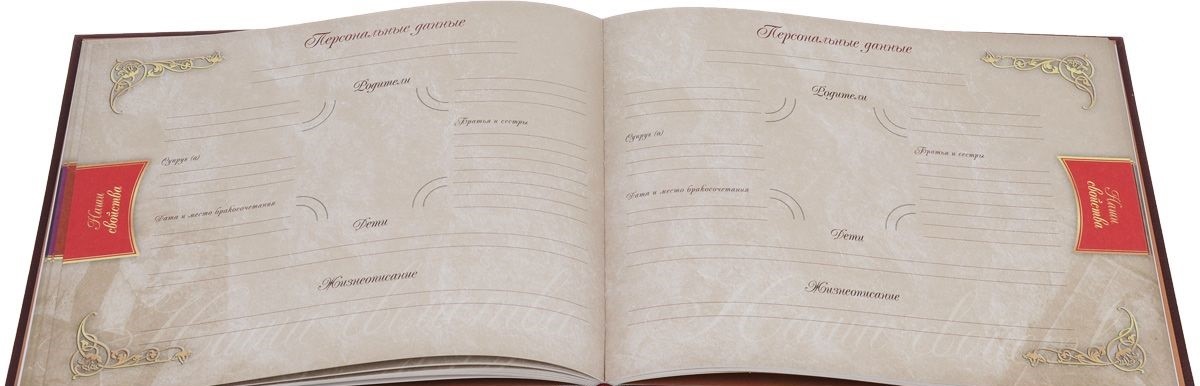 Персональные данные
Родители
Братья и сестры
Супруг (а)
Дата и место бракосочетания
Дети
Жизнеописание
Наши
свойства
Персональные данные
Родители
Супруг (а)
Братья и сестры
Дата и место бракосочетания
Дети
Жизнеописание
Наши
свойства